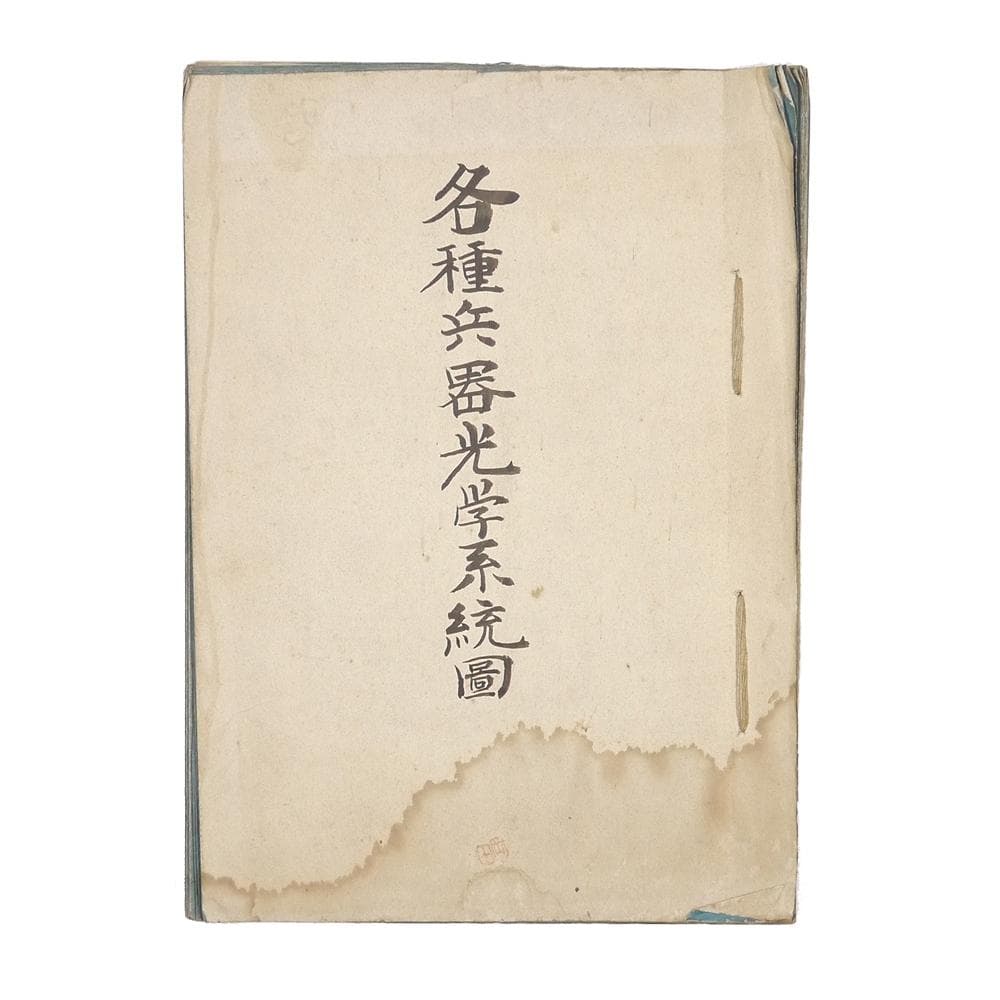 各種兵器光学系統圖